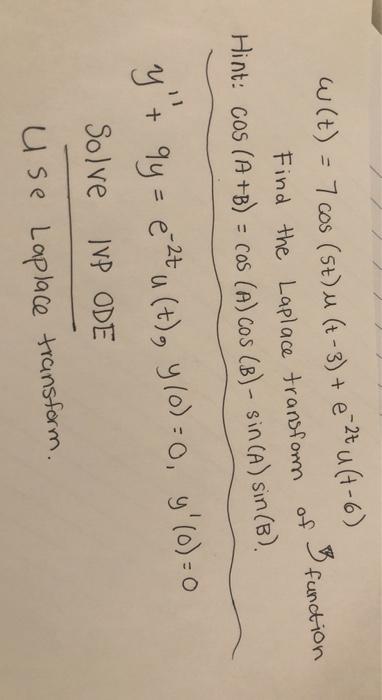 w(t) = 7 cos (5t) u (t-3) + e^-2t u(t-6)
Find the Laplace transform of function
Hint: cos (A+B) = cos (A) cos (B) - sin(A) sin (B).
y'' + 9y = e^-2t u(t), y(0)=0, y'(0)=0
Solve IVP ODE
Use Laplace transform.